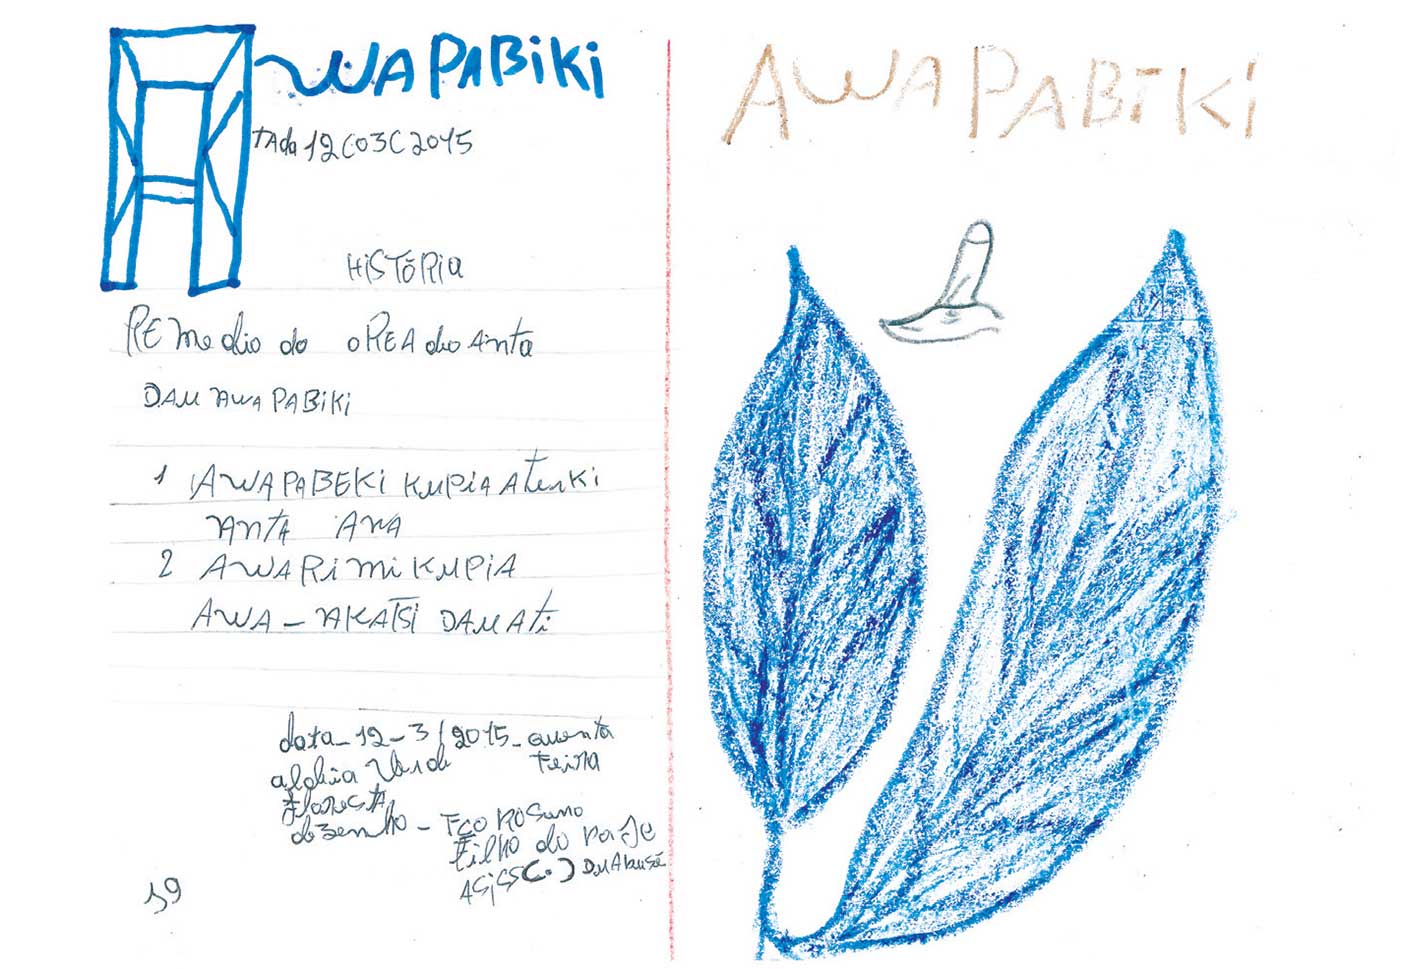 AWAPABiKi
TAda 12C03C2015
HiSTŌRia
REmedio do oREA do Anta
DAU AWAPABiKi
1 AWAPABEKi KUPiA Atenki
ANTA AWA
2 AWARimi KUPiA
AWA - NAKATSi DAUAti
data - 12 - 3/2015 - quenta
Feira
aldeia Verde
floresta
dezenho - FCO ROSeno
filho do paJe
19
AWAPABiKi